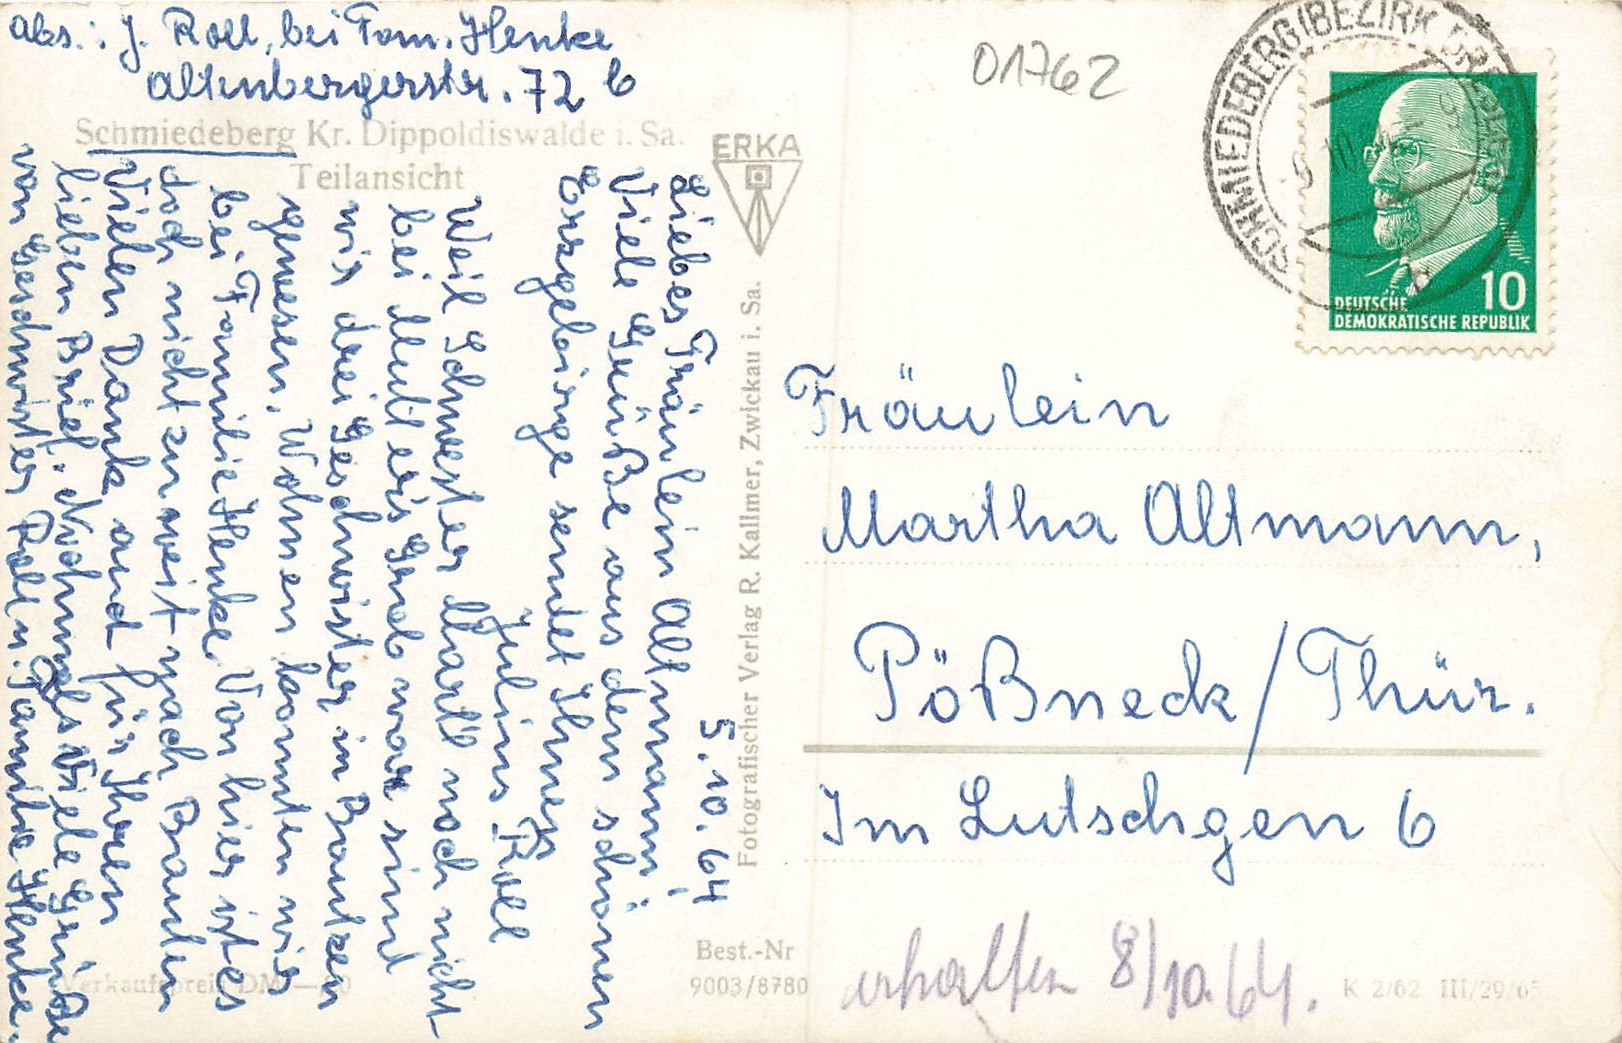 Abs.: J. Roll, bei Fam. Henke
Altenbergerstr. 72 b
Schmiedeberg Kr. Dippoldiswalde i. Sa.
Teilansicht
ERKA
5.10.64
Liebes Fräulein Altmann!
Viele Grüße aus dem schönen
Erzgebirge sendet Ihnen
Julius Roll
Weil Schwester Martl noch nicht
bei Mutter's Grab war sind
wir drei Geschwister in Bautzen
gewesen. Wohnen konnten wir
bei Familie Henke. Von hier ist es
doch nicht zu weit nach Bautzen
Vielen Dank auch für Ihren
lieben Brief. Nochmals viele Grüße
von Geschwister Roll u. Familie Henke.
Fotografischer Verlag R. Kallmer, Zwickau i. Sa.
Best.-Nr
9003/8780
Verkaufspreis DM
01762
SCHMIEDEBERG (BEZIRK DRESDEN)
DEUTSCHE
DEMOKRATISCHE REPUBLIK
10
Fräulein
Martha Altmann,
Pößneck/Thür.
Im Lutschgen 6
erhalten 8/10.64.
K 2/62 III/29/65